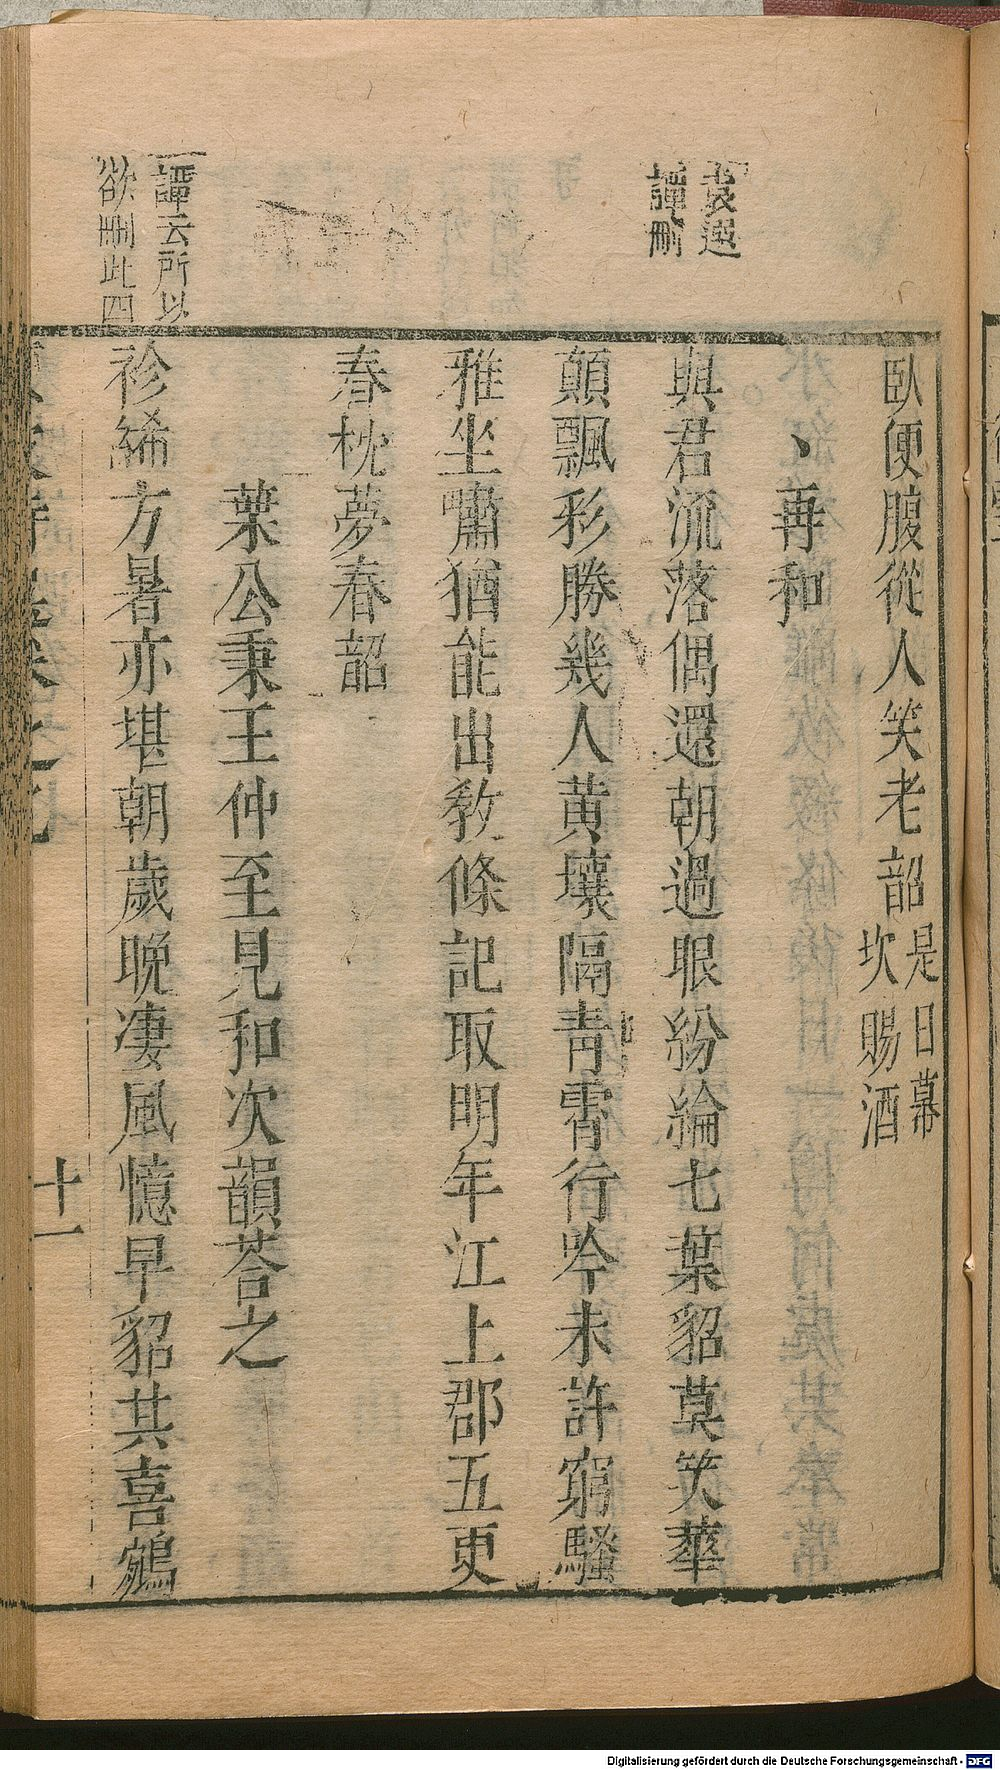 臥便腹從人笑老韶是日幕
坎賜酒
、再和
袁選
譚刪
與君流落偶還朝過眼紛綸七葉貂莫笑華
顛飄彩勝幾人黃壤隔青霄行吟未許窮騷
雅坐嘯猶能出敎條記取明年江上郡五更
春枕夢春韶
葉公秉王仲至見和次韻荅之
譚云所以
欲刪此四
袗絺方暑亦堪朝歲晚凄風憶早貂共喜鵷
十一
Digitalisierung gefördert durch die Deutsche Forschungsgemeinschaft - DFG